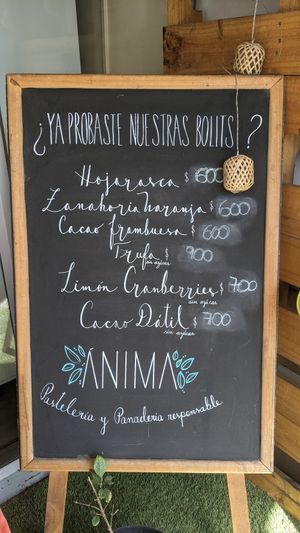 ¿YA PROBASTE NUESTRAS BOLITS?
Hojarasca $600
Zanahoria naranja $600
Cacao frambuesa $600
Trufa $700
sin azúcar
Limón Cranberries $700
sin azúcar
Cacao Dátil $700
sin azúcar
ÁNIMA
Pastelería y Panadería responsable